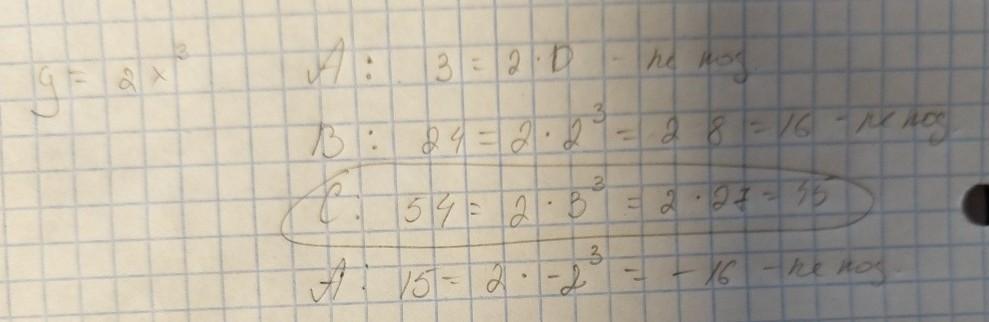 y = 2x³
A: 3 = 2·0 - не под.
B: 24 = 2·2³ = 2 8 = 16 - не под.
C: 54 = 2·3³ = 2·27 = 45
A: 15 = 2·-2³ = -16 - не под.